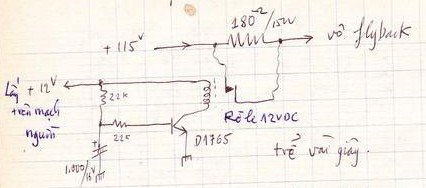 180Ω/15W
+115V
vô flyback
Lấy +12V
trên mạch
nguồn
22K
22K
D1765
Rờ le 12VDC
1.000/16V
trễ vài giây.